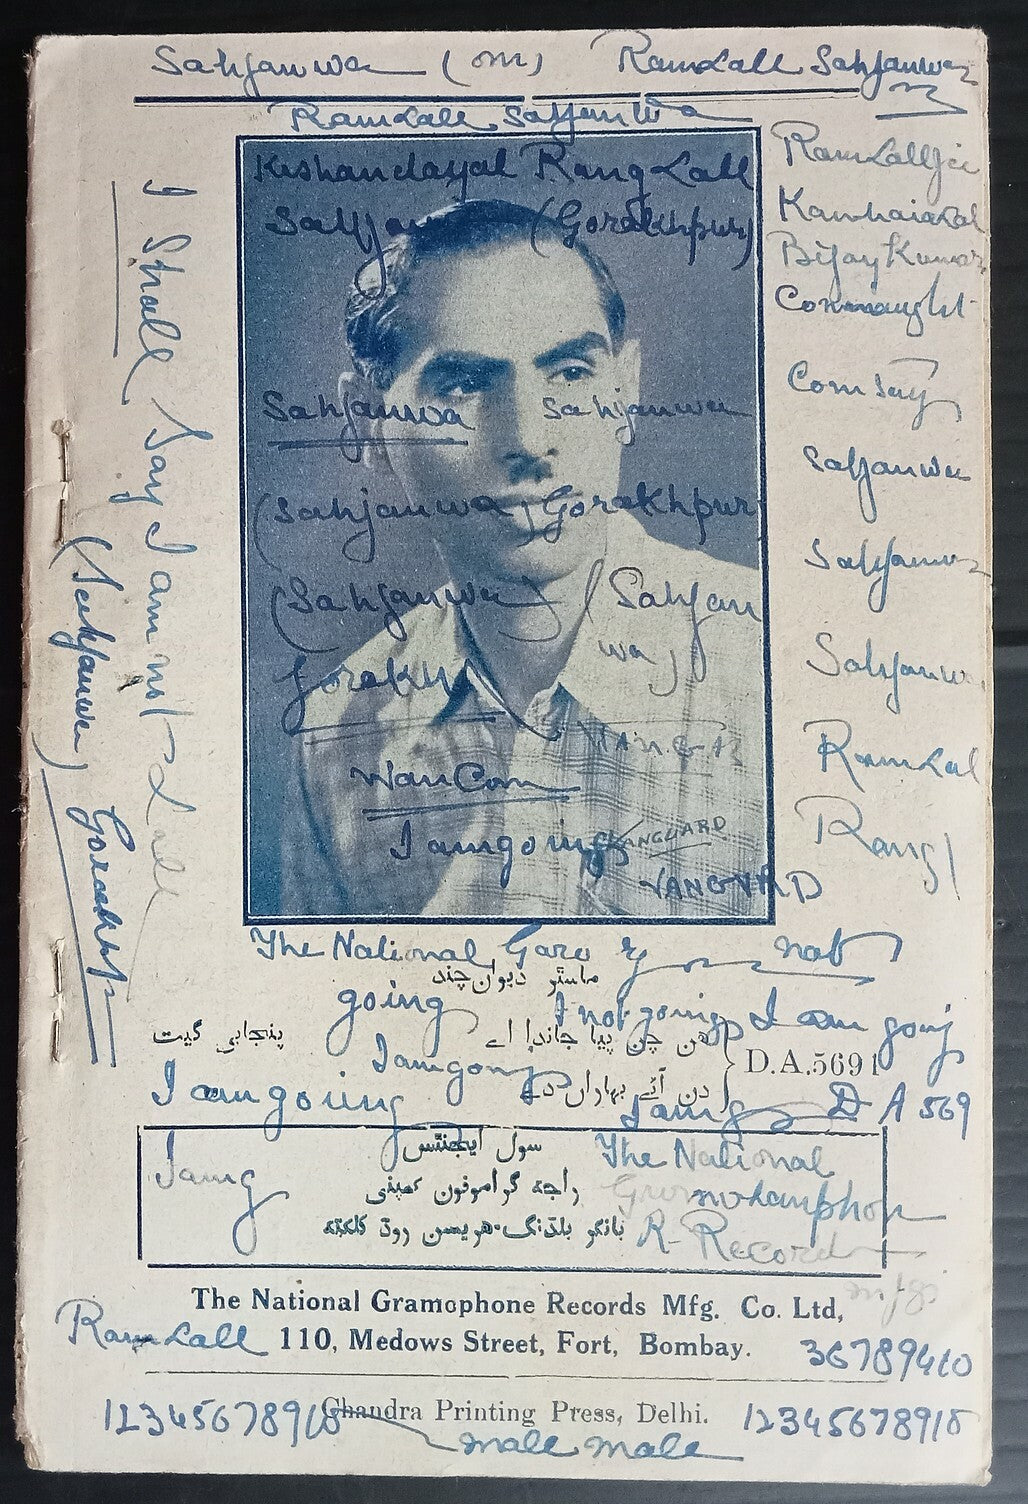 Sahjanwa (om) Ramlall Sahjanwa
Ramlall Sahjanwa
Kishandayal Rang Lall
(Gorakhpur)
Ramlallji
Kanhaialal
Bijay Kumar
Connaught
Sahjanwa Sahjanwa
(Sahjanwa) Gorakhpur
(Sahjanwa) (Sahjan
wa)
Gorakh
VANGA
WanCom
I am going VANGUARD
VANGUARD
Sahjanwa
Sahjanwa
Sahjanwa
RamLal
Rang
I Shall Say I am not Lall
(Sahjanwa) Gorakhp
The National Garo nat
ماسٹر دیوان چند
going I not going I am going
پنجابی گیت
چن پیا جاندا اے
D.A.5691
I am going
دن آئے بہاراں دے
I am going I am g D A 569
سول ایجنٹس
The National
I am g
راجہ گراموفون کمپنی
بانکو بلڈنگ۔ہریسن روڈ کلکتہ
R- Record
mfg
The National Gramophone Records Mfg. Co. Ltd,
RamLall 110, Medows Street, Fort, Bombay.
36789410
12345678910 Chandra Printing Press, Delhi. 12345678910
male male